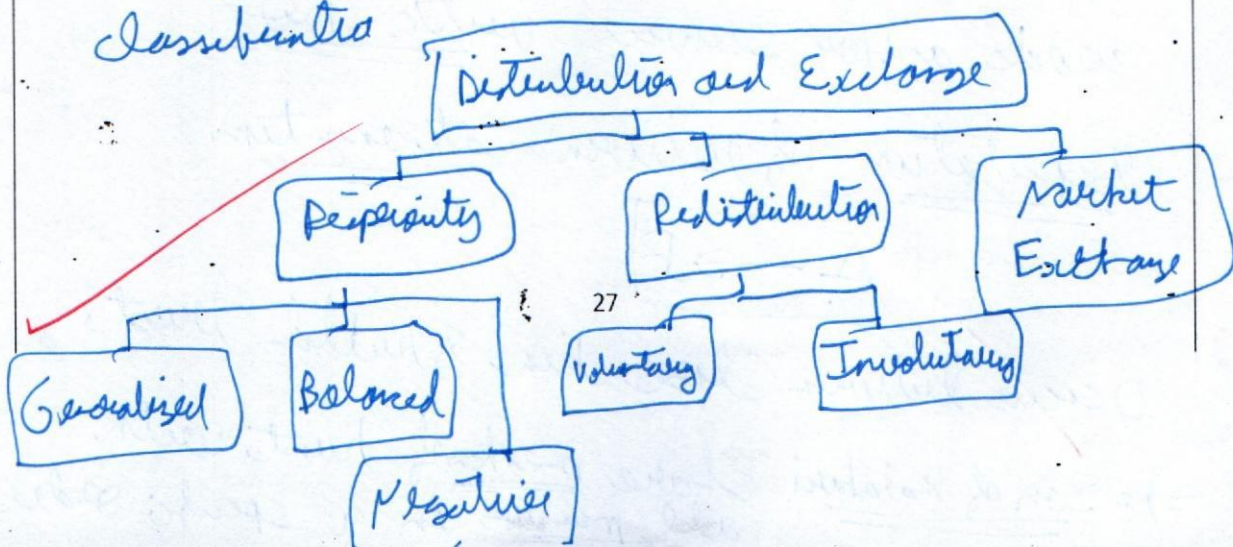 Classification
Distribution and Exchange
Reciprocity
Redistribution
Market
Exchange
27
Generalized
Balanced
Voluntary
Involuntary
Negative